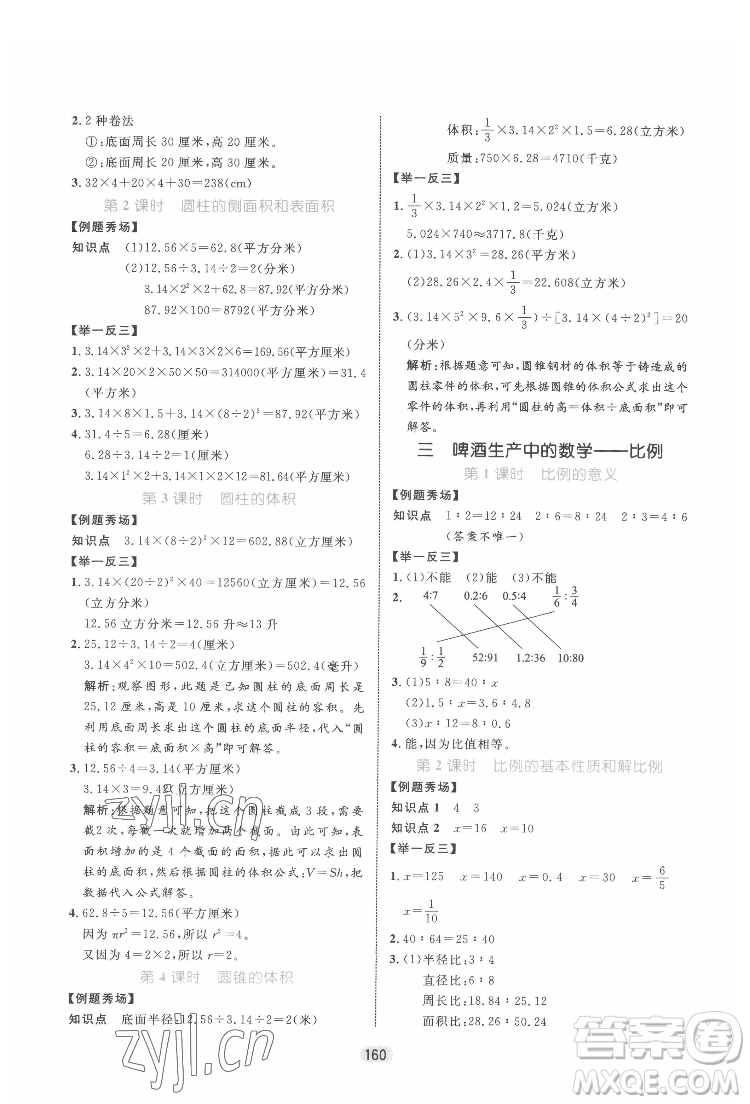 2.2 种卷法
①:底面周长 30 厘米,高 20 厘米。
②:底面周长 20 厘米,高 30 厘米。
3.32×4+20×4+30=238(cm)
第 2 课时 圆柱的侧面积和表面积
【例题秀场】
知识点 (1)12.56×5=62.8(平方分米)
(2)12.56÷3.14÷2=2(分米)
3.14×2²×2+62.8=87.92(平方分米)
87.92×100=8792(平方分米)
【举一反三】
1.3.14×3²×2+3.14×3×2×6=169.56(平方厘米)
2.3.14×20×2×50×50=314000(平方厘米)=31.4
(平方米)
3.3.14×8×1.5+3.14×(8÷2)²=87.92(平方米)
4.31.4÷5=6.28(厘米)
6.28÷3.14÷2=1(厘米)
3.14×1²×2+6.28×5=37.68(平方厘米)
第 3 课时 圆柱的体积
【例题秀场】
知识点 3.14×(8÷2)²×10=502.4(立方厘米)
【举一反三】
1.3.14×(20÷2)²×40=12560(立方厘米)=12.56
(立方分米)
12.56 立方分米=12.56 升≈13 升
2.25.12÷3.14÷2=4(厘米)
3.14×4²×10=502.4(立方厘米)=502.4(毫升)
解析:观察图形,此题是已知圆柱的底面周长是
25.12 厘米,高是 10 厘米,求这个圆柱的容积。先
利用底面周长求出这个圆柱的底面半径,代入“圆
柱的容积=底面积×高”即可解答。
3.12.56÷4=3.14(平方厘米)
3.14×3=9.42(立方厘米)
解析:根据题意可知,把这个圆柱截成 3 段,需要
截2次,每截一次就增加两个截面。所以一共表
面积增加 4 个截面的面积是 12.56 平方厘米,据
此求出底面积,然后根据圆柱的体积公式:V=Sh,把
数据代入公式解答。
4.62.8÷5=12.56(平方厘米)
因为 πr²=12.56,所以 r²=4
又因为 4=2×2,所以 r=2
第 4 课时 圆锥的体积
【例题秀场】
知识点 底面半径:12.56÷3.14÷2=2(米)
体积:1/3×3.14×2²×1.5=6.28(立方米)
质量:750×6.28=4710(千克)
【举一反三】
1.1/3×3.14×2²×1.2=5.024(立方米)
5.024×740≈3717.8(千克)
2.(1)3.14×3²=28.26(平方米)
(2)28.26×2.4×1/3=22.608(立方米)
3.(3.14×5²×9.6×1/3)÷[3.14×(4÷2)²]=20
(分米)
解析:根据题意可知,圆锥钢材的体积等于铸造成的
圆柱零件的体积,可先根据圆锥的体积公式求出这个
零件的体积,再利用“圆柱的高=体积÷底面积”即可
解答。
三 啤酒生产中的数学——比例
第 1 课时 比例的意义
【例题秀场】
知识点 1∶2=12∶24 2∶3=4∶6
(答案不唯一)
【举一反三】
1.(1)不能 (2)能 (3)不能
2. 4:7 0.2:6 0.5:4 1/6:3/4
1/9:1/2 52:91 1.2:36 10:80
3.(1)5∶8=40∶x
(2)1.5∶x=3.6∶4.8
(3)x∶12=8∶9
4.能,因为比值相等。
第 2 课时 比例的基本性质和解比例
【例题秀场】
知识点 1 4 3
知识点 2 x=16 x=10
【举一反三】
1.x=125 x=140 x=0.4 x=30 x=6/5
x=1/10
2.40∶64=25∶40
3.(1)半径比:3∶4
直径比:6∶8
周长比:18.84∶25.12
面积比:28.26∶50.24
160
zyjl.cn
zyjl.cn
答案圈
MXQE.COM